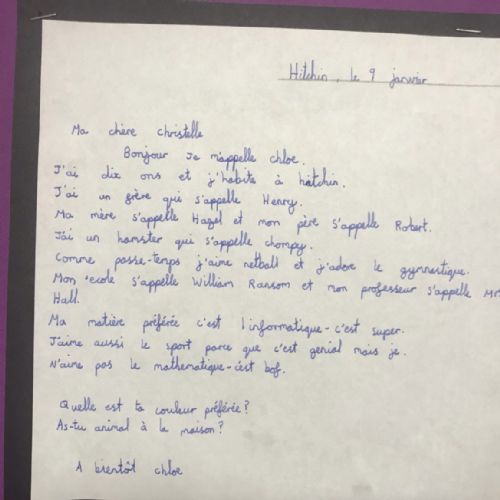 Hitchin, le 9 janvier
Ma chère christelle
Bonjour Je m'appelle chloe.
J'ai dix ons et j'habite à hitchin.
J'ai un frère qui s'appelle Henry.
Ma mère s'appelle Hazel et mon père s'appelle Robert.
J'ai un hamster qui s'appelle chompy.
Comme passe-temps j'aime netball et j'adore le gymnastique.
Mon 'ecole s'appelle William Ransom et mon professeur s'appelle Mr
Hall.
Ma matière préférée c'est l'informatique - c'est super.
J'aime aussi le sport parce que c'est genial mais je.
N'aime pas le mathematique - c'est bof.
Quelle est ta couleur préférée?
As-tu animal à la maison?
A bientôt chloe